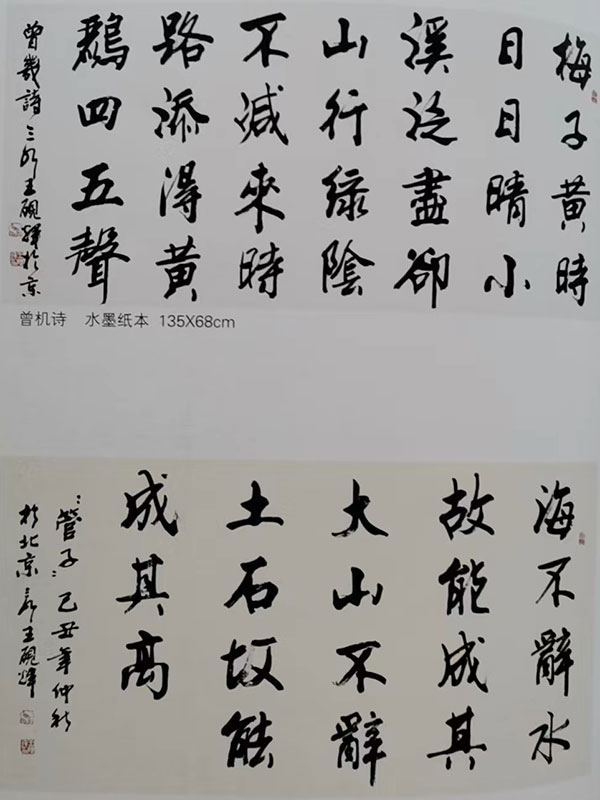 梅子黄時
日日晴小
溪泛盡卻
山行緑陰
不減來時
路添得黄
鸝四五聲
曾幾詩 三水王硯輝於京
曾机诗 水墨纸本 135X68cm
海不辭水
故能成其
大山不辭
土石故能
成其高
"管子"己丑年仲秋
於北京三水王硯輝